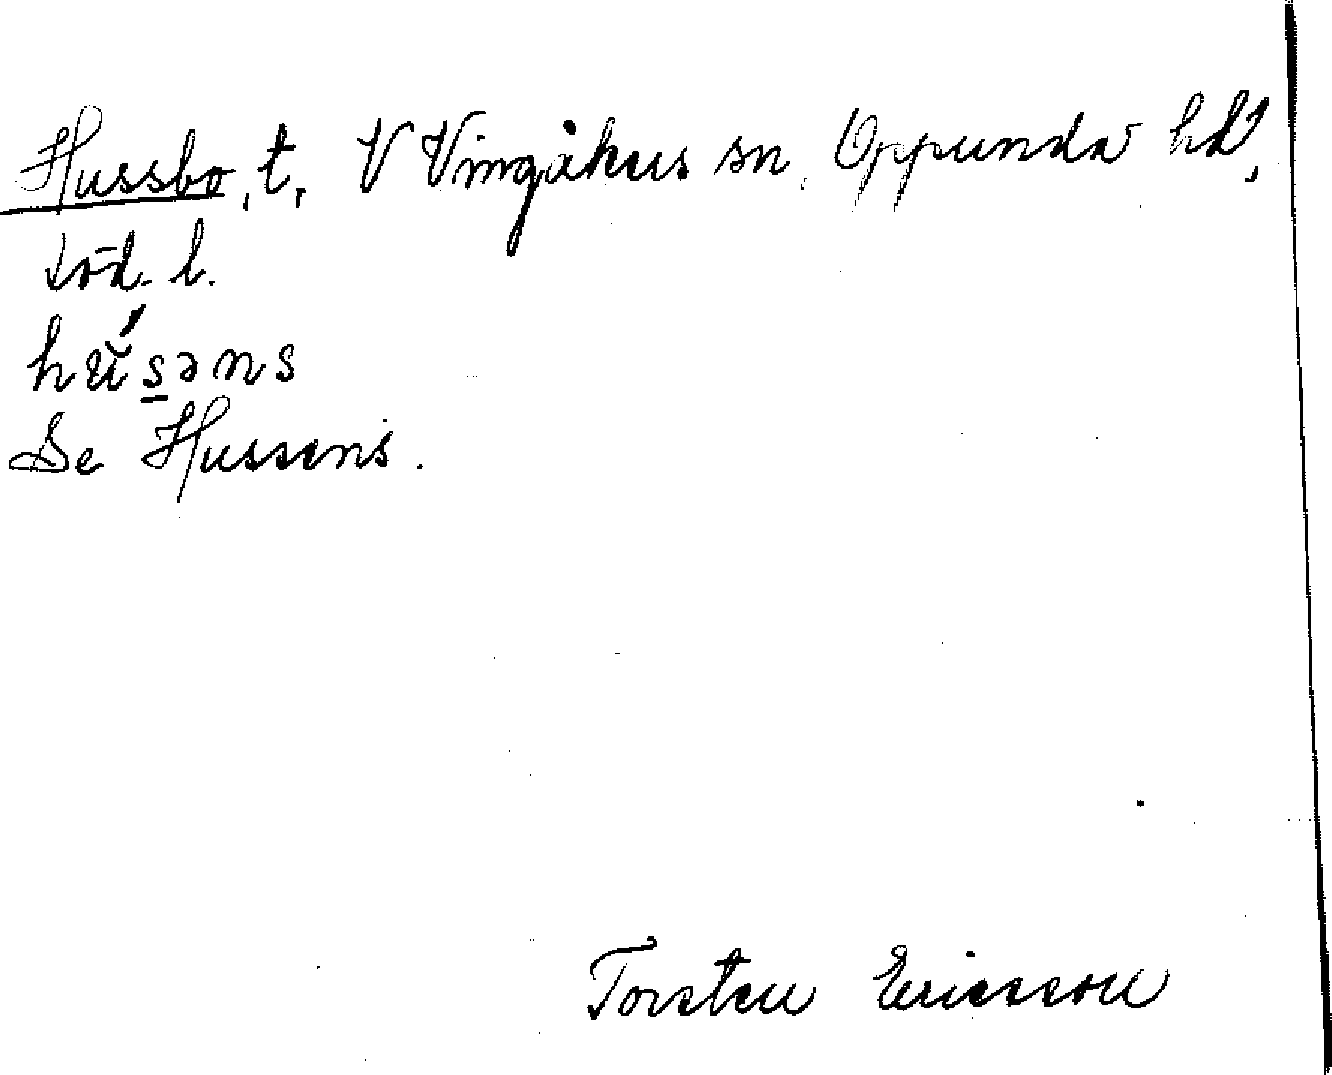 Hussbo, t, V Vingåkers sn, Oppunda hd,
Söd. l.
hŭ́s̲əns
Se Hussens.
Torsten Ericsson